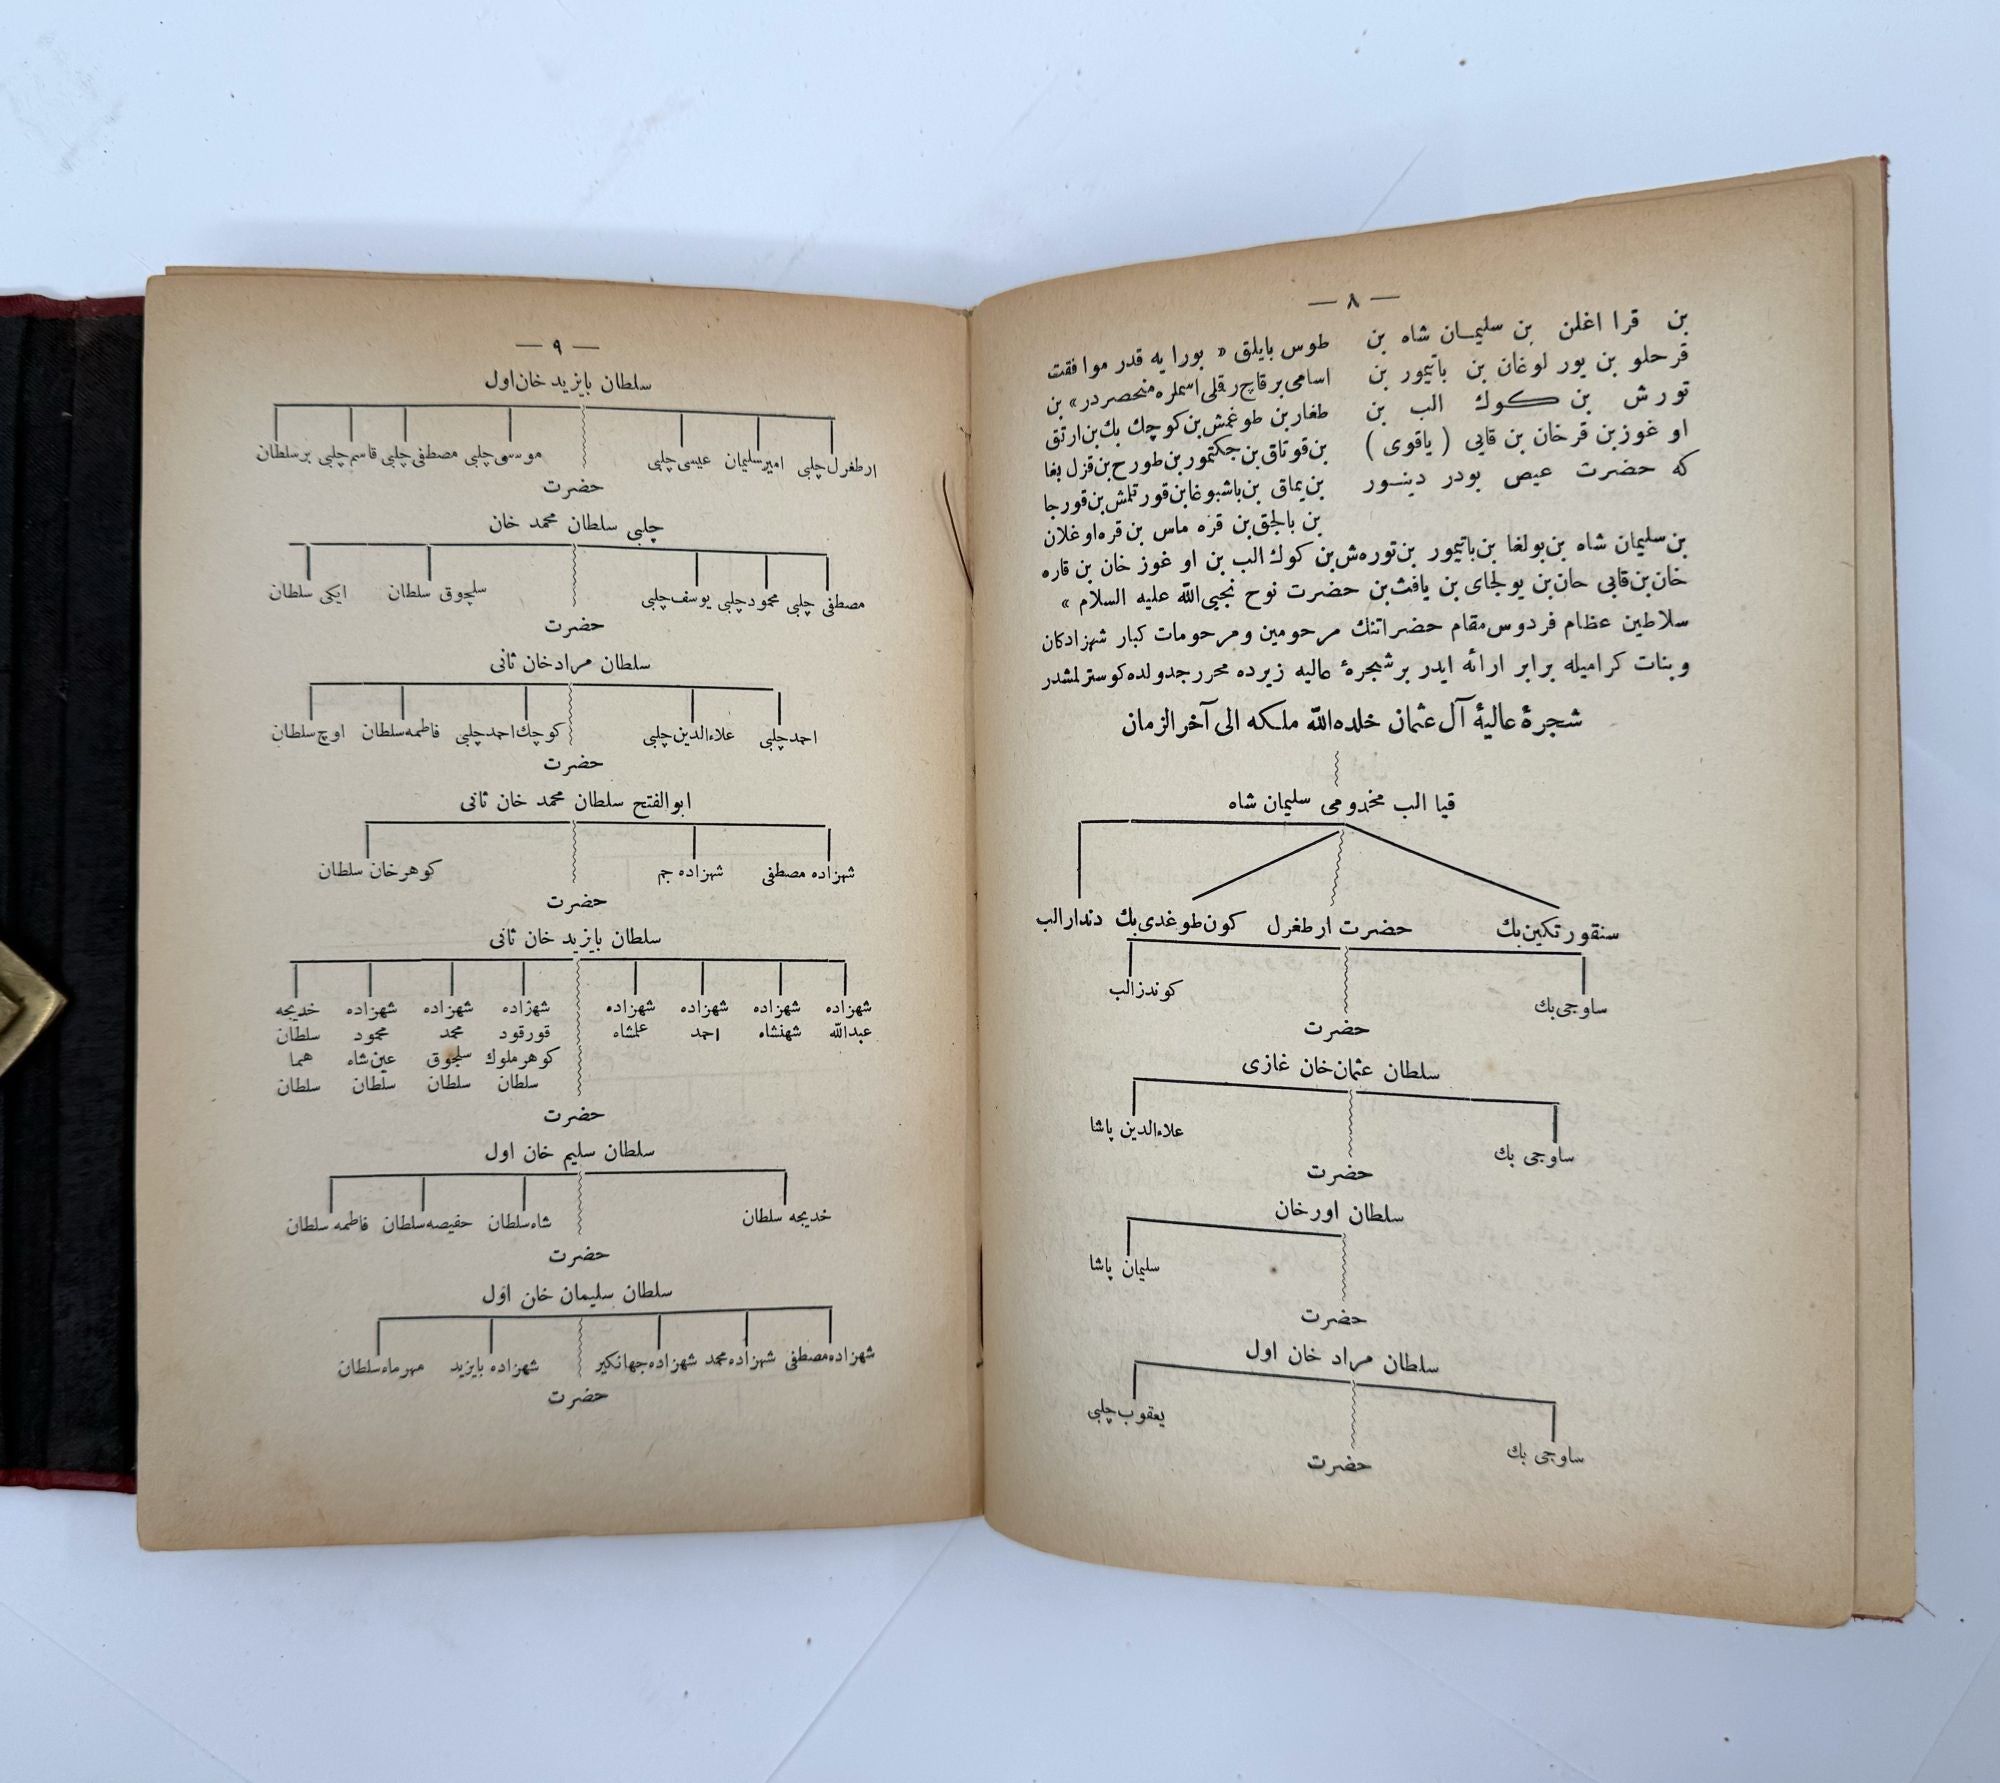 — ٨ —
بن قرا اغلن بن سلیمـان شاه بن
قرحلو بن یور لوغان بن باتیمور بن
تورش بن کوك الب بن
او غوزبن قرخان بن قایی ( یاقوی )
که حضرت عیص بودر دینـور
طوس بایلق « بورا یه قدر موافقت
اسامی برقاچ رقلی اسملره منحصردر» بن
طغاربن طوغمش‌بن‌کوچك بك‌بن‌ارتق
بن‌قوتاق‌بن‌جکتمور‌بن‌طورح‌بن‌قزل بغا
بن‌یماق بن‌باشبوغابن‌قورتلمش‌بن‌قورجا
بن بالجق‌بن قزه ماس بن‌قره‌اوغلان
بن‌سلیمان شاه بن‌بولغا بن‌باتیمور بن‌توره‌ش‌بن کوك الب بن او غوز خان بن قاره
خان‌بن‌قابی حان‌بن یولجای بن یافث‌بن حضرت نوح نجیی‌الله علیه السلام »
سلاطین عظام فردوس‌مقام حضراتنك مرحومین ومرحومات کبار شهزادکان
وبنات کرامیله برابر ارائه ایدر برشجرهٔ عالیه زیرده محرر جدولده‌کوسترلمشدر
شجرهٔ عالیهٔ آل‌عثمان خلده‌الله ملکه الی آخرالزمان
قیا الب مخدومی سلیمان شاه
سنقورتکین‌بك حضرت ارطغرل کون‌طوغدی‌بك دندارالب
ساوجی‌بك کوندزالب
حضرت
سلطان عثمان‌خان غازی
ساوجی بك علاءالدین پاشا
حضرت
سلطان اورخان
سلیمان پاشا
حضرت
سلطان مراد خان اول
ساوجی بك یعقوب‌چلبی
حضرت
— ٩ —
سلطان بایزید خان‌اول
ارطغرل‌چلبی امیرسلیمان عیسی‌چلبی موسی‌چلبی مصطفی‌چلبی قاسم‌چلبی برسلطان
حضرت
چلبی سلطان محمد خان
مصطفی چلبی محمودچلبی یوسف‌چلبی سلچوق سلطان ایکی سلطان
حضرت
سلطان مرادخان ثانی
احمدچلبی علاءالدین‌چلبی کوچك‌احمدچلبی فاطمه‌سلطان اوچ‌سلطان
حضرت
ابوالفتح سلطان محمد خان ثانی
شهزاده مصطفی شهزاده جم کوهرخان سلطان
حضرت
سلطان بایزید خان ثانی
شهزاده شهزاده شهزاده شهزاده شهزاده شهزاده شهزاده خدیجه
عبدالله شهنشاه احمد علمشاه قورقود محمد محمود سلطان
کوهرملوك سلجوق عین‌شاه هما
سلطان سلطان سلطان سلطان
حضرت
سلطان سلیم خان اول
خدیجه سلطان شاه‌سلطان حفیصه‌سلطان فاطمه سلطان
حضرت
سلطان سلیمان خان اول
شهزاده‌مصطفی شهزاده‌محمد شهزاده‌جهانکیر شهزاده بایزید مهرماه‌سلطان
حضرت